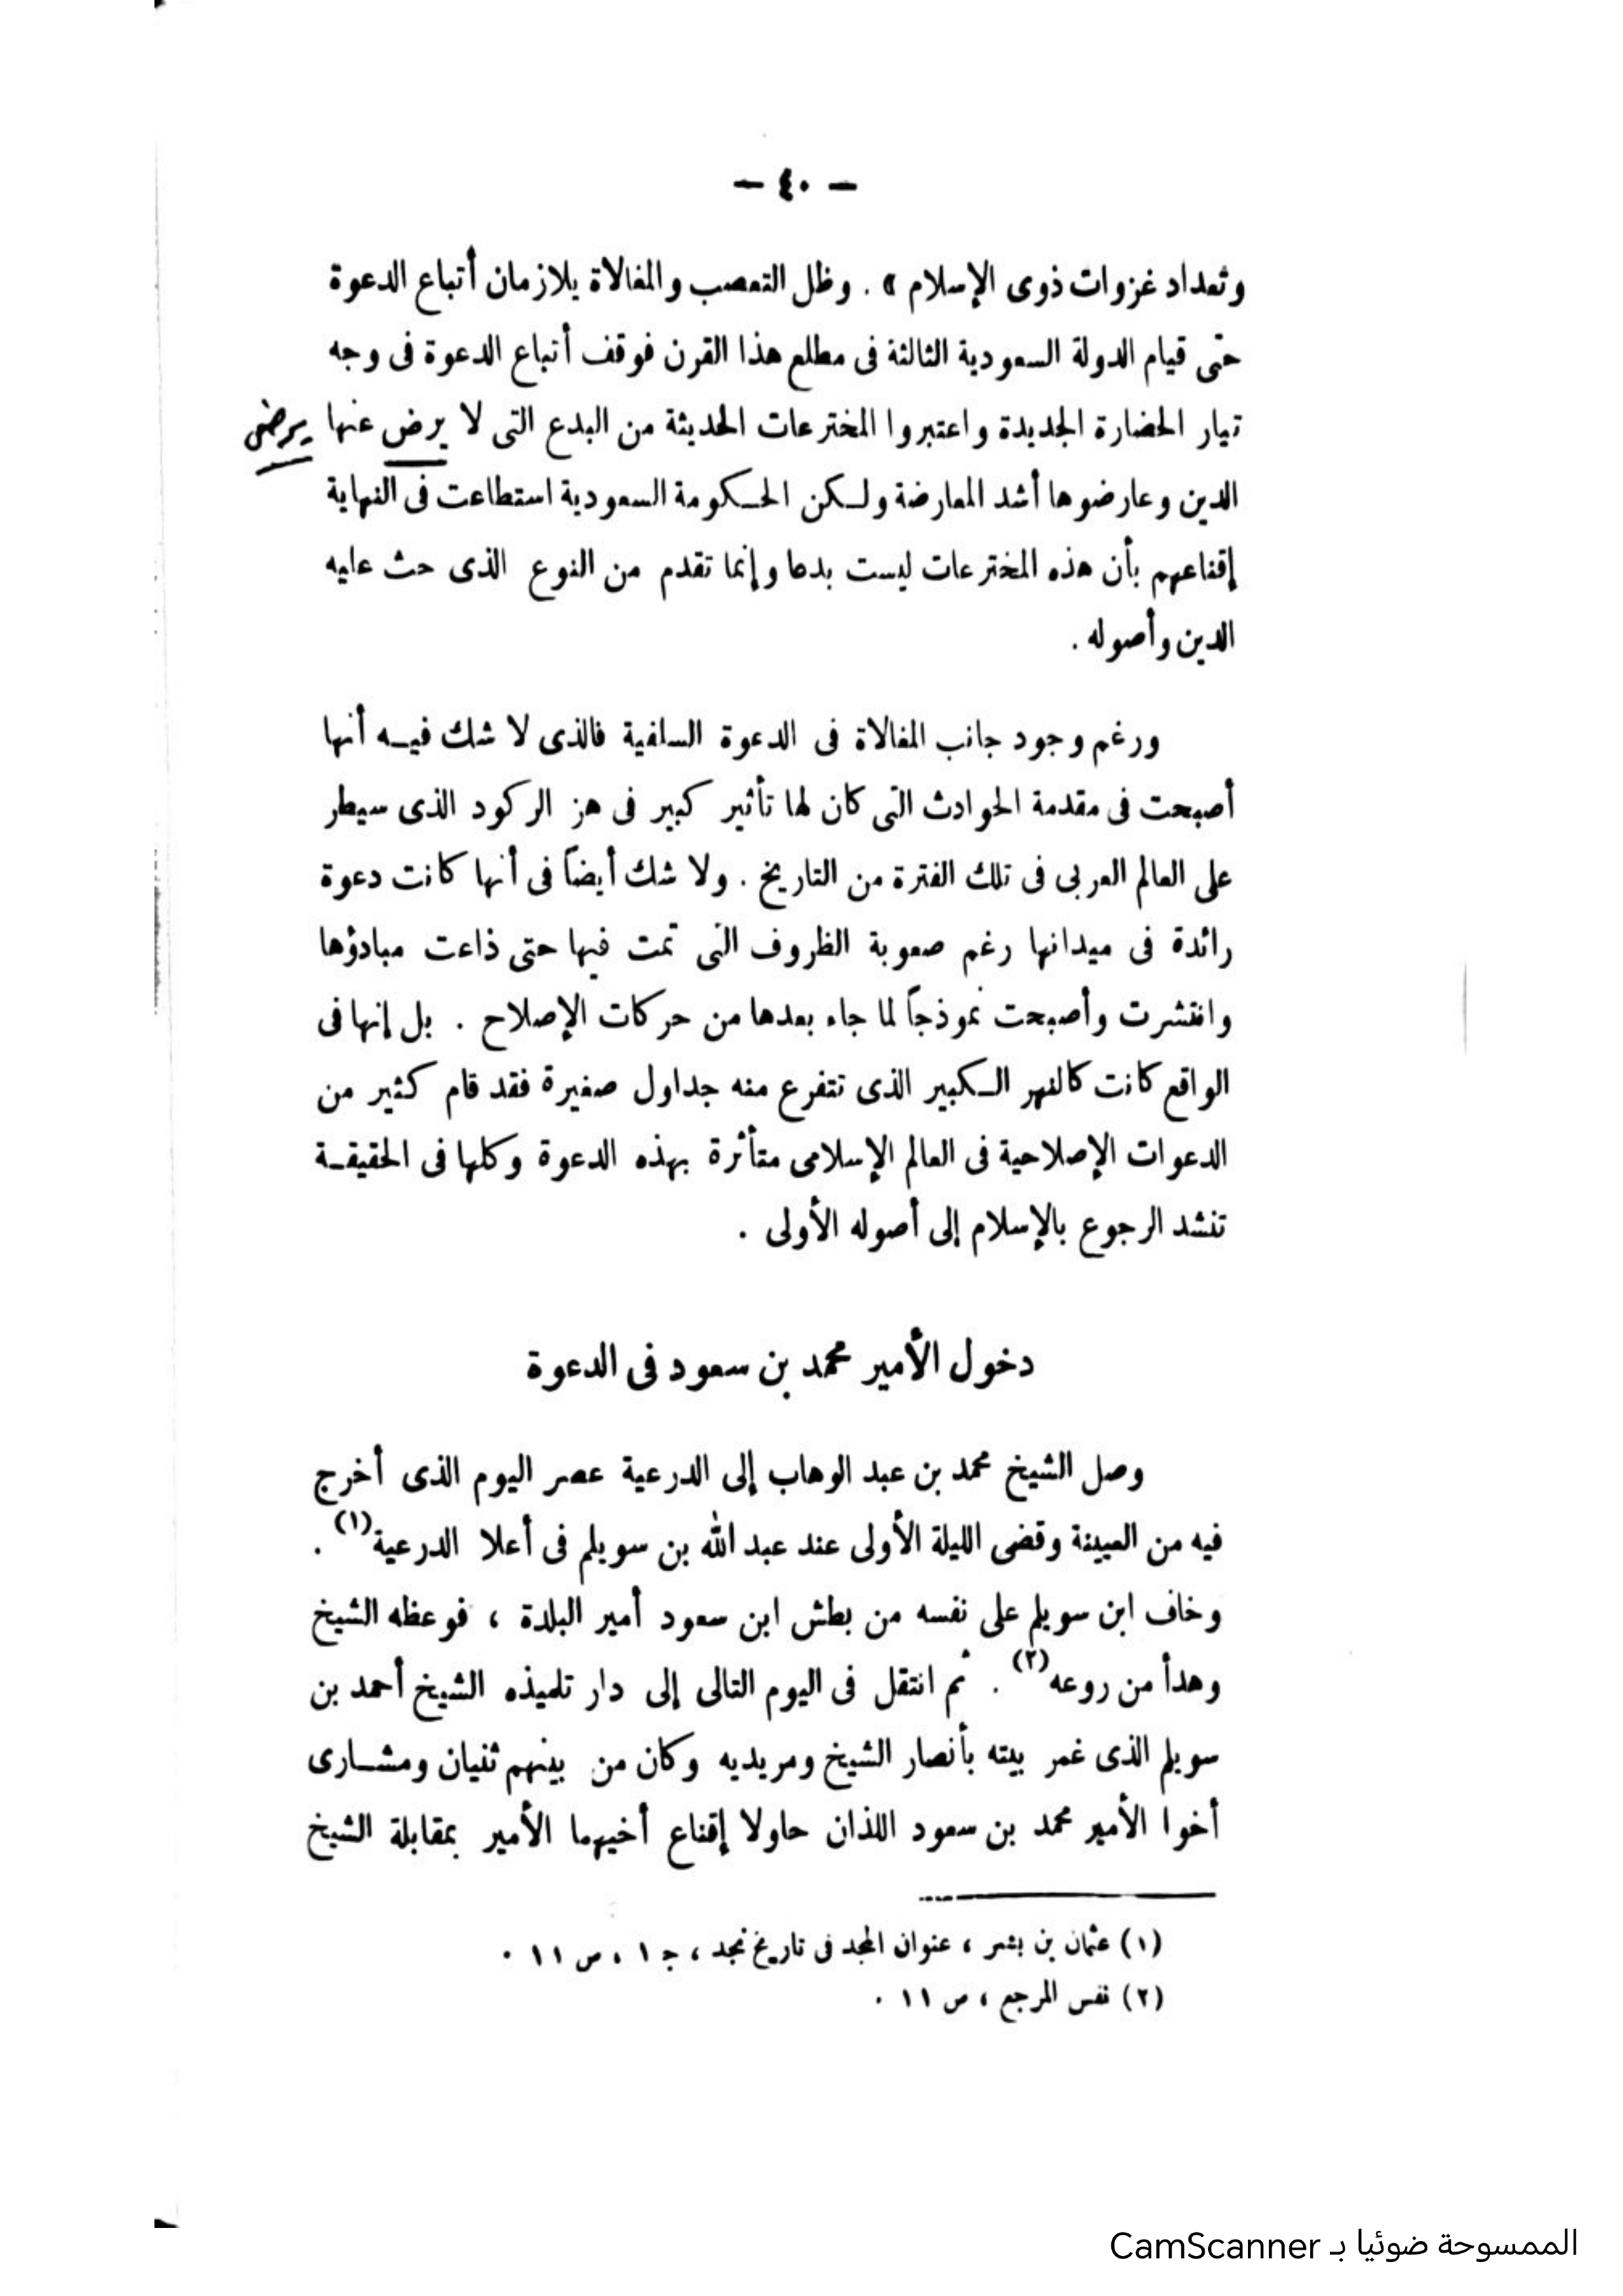 — ٤٠ —
وتعداد غزوات ذوى الإسلام » . وظل التعصب والمغالاة يلازمان أتباع الدعوة
حتى قيام الدولة السعودية الثالثة فى مطلع هذا القرن فوقف أتباع الدعوة فى وجه
تيار الحضارة الجديدة واعتبروا المخترعات الحديثة من البدع التى لا يرض عنها يرضى
الدين وعارضوها أشد المعارضة ولكن الحكومة السعودية استطاعت فى النهاية
إقناعهم بأن هذه المخترعات ليست بدعا وإنما تقدم من النوع الذى حث عليه
الدين وأصوله .
ورغم وجود جانب المغالاة فى الدعوة السلفية فالذى لا شك فيه أنها
أصبحت فى مقدمة الحوادث التى كان لها تأثير كبير فى هز الركود الذى سيطر
على العالم العربى فى تلك الفترة من التاريخ . ولا شك أيضاً فى أنها كانت دعوة
رائدة فى ميدانها رغم صعوبة الظروف التى تمت فيها حتى ذاعت مبادؤها
وانتشرت وأصبحت نموذجاً لما جاء بعدها من حركات الإصلاح . بل إنها فى
الواقع كانت كالنهر الكبير الذى تتفرع منه جداول صغيرة فقد قام كثير من
الدعوات الإصلاحية فى العالم الإسلامى متأثرة بهذه الدعوة وكلها فى الحقيقة
تنشد الرجوع بالإسلام إلى أصوله الأولى .
دخول الأمير محمد بن سعود فى الدعوة
وصل الشيخ محمد بن عبد الوهاب إلى الدرعية عصر اليوم الذى أخرج
فيه من العيينة وقضى الليلة الأولى عند عبد الله بن سويلم فى أعلا الدرعية(١) .
وخاف ابن سويلم على نفسه من بطش ابن سعود أمير البلدة ، فوعظه الشيخ
وهدأ من روعه(٢) . ثم انتقل فى اليوم التالى إلى دار تلميذه الشيخ أحمد بن
سويلم الذى غمر بيته بأنصار الشيخ ومريديه وكان من بينهم ثنيان ومشارى
أخوا الأمير محمد بن سعود اللذان حاولا إقناع أخيهما الأمير بمقابلة الشيخ
(١) عثمان بن بشر ، عنوان المجد فى تاريخ نجد ، ج ١ ، ص ١١ .
(٢) نفس المرجع ، ص ١١ .
الممسوحة ضوئيا بـ CamScanner